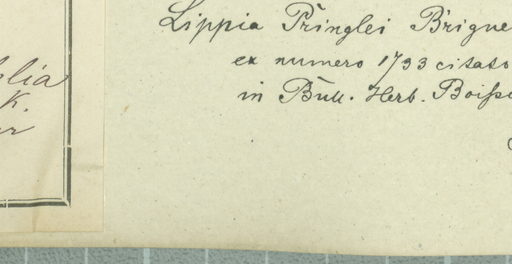 Lippia Pringlei Brique
ex numero 1793 citato
in Bull. Herb. Boiss
K.